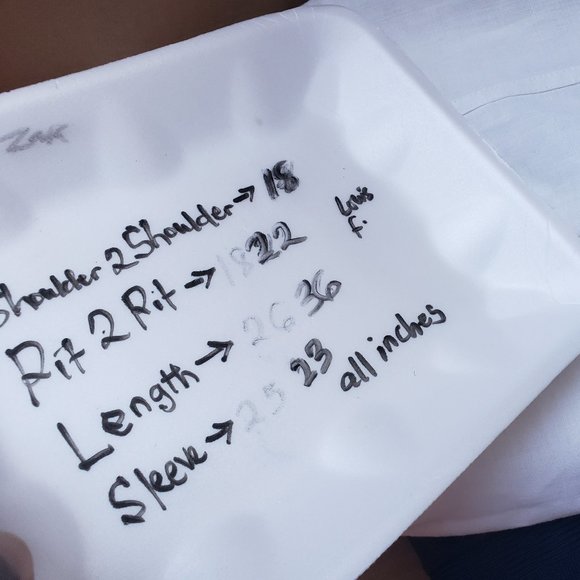 ZAK
Shoulder 2 Shoulder → 18
Pit 2 Pit → 18 22
Length → 26 36
Sleeve → 25 23
all inches